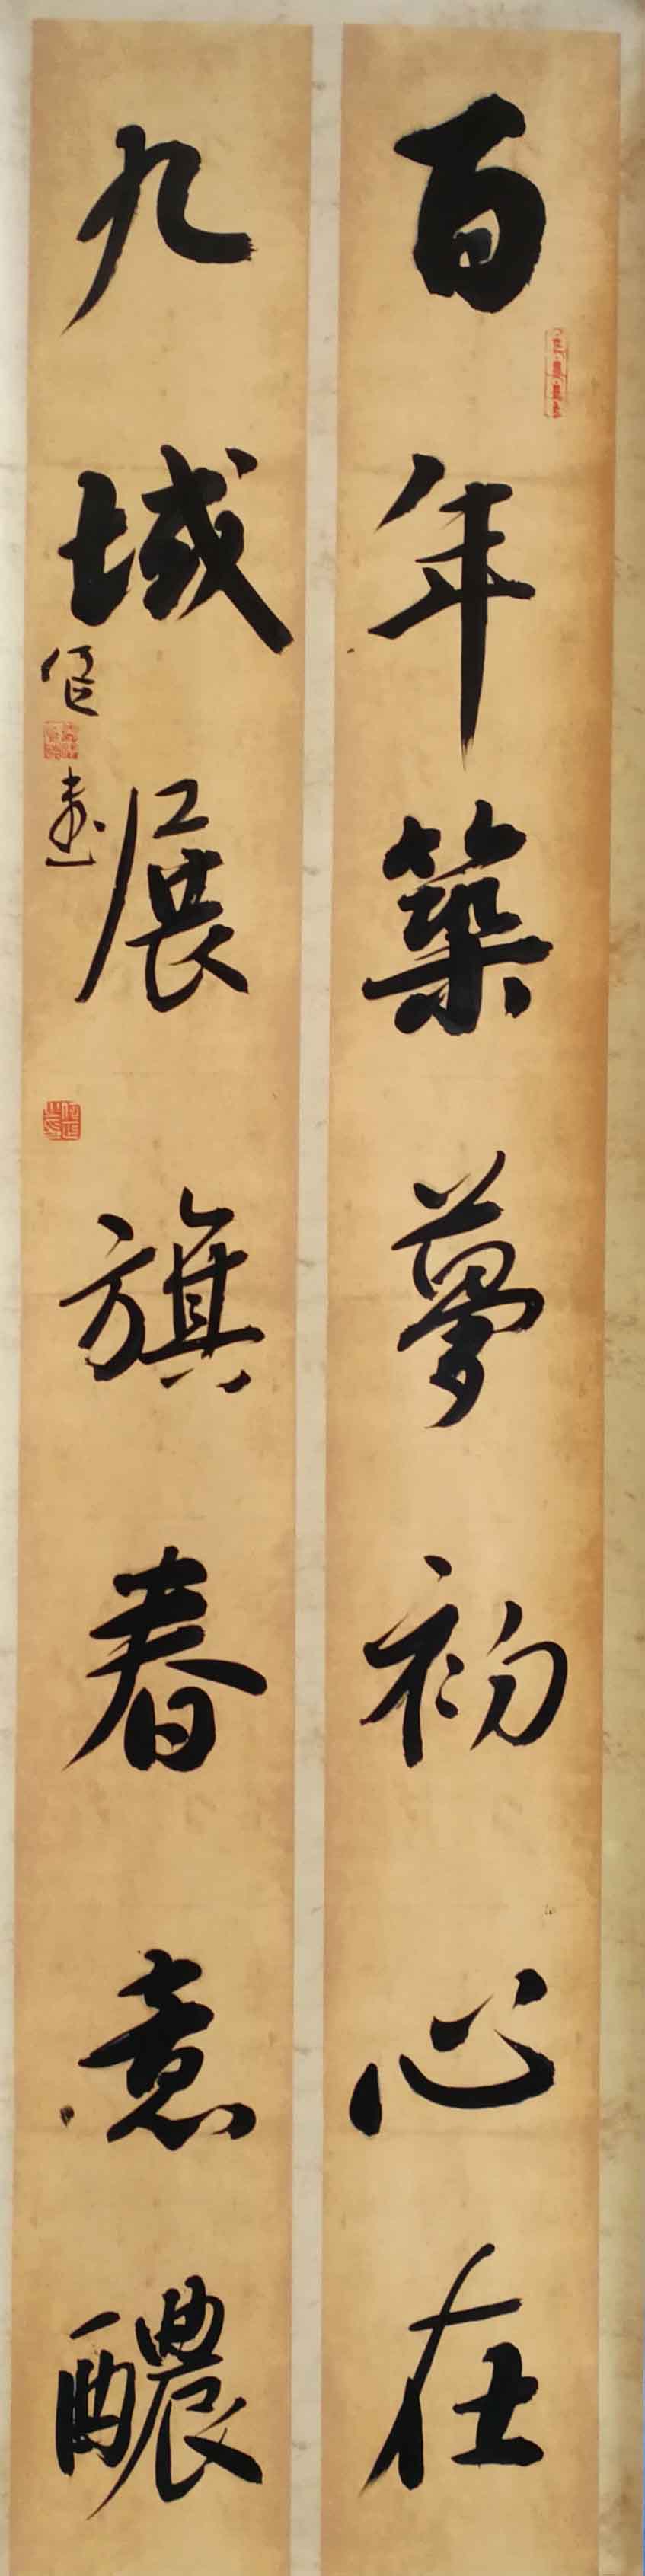 百年築夢初心在
九域展旗春意醲